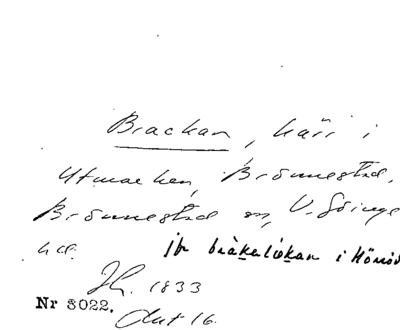 Brackan, kärr i
Utmarken, Brönnestad,
Brönnestad sn, V. Göinge
hd. jfr bråkalókan i Hörröd
Jh. 1833
Nr 3022.
Akt 16.